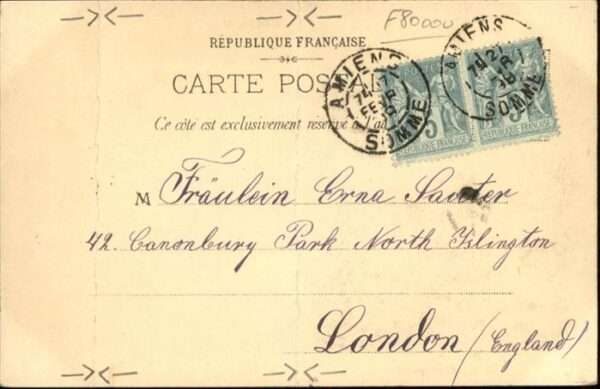 F80000
RÉPUBLIQUE FRANÇAISE
CARTE POS
Ce côté est exclusivement réservé à l'ad
AMIENS
SOMME
AMIENS
SOMME
5
5
M Fräulein Erna Sauter
42. Canonbury Park North Islington
London (England)